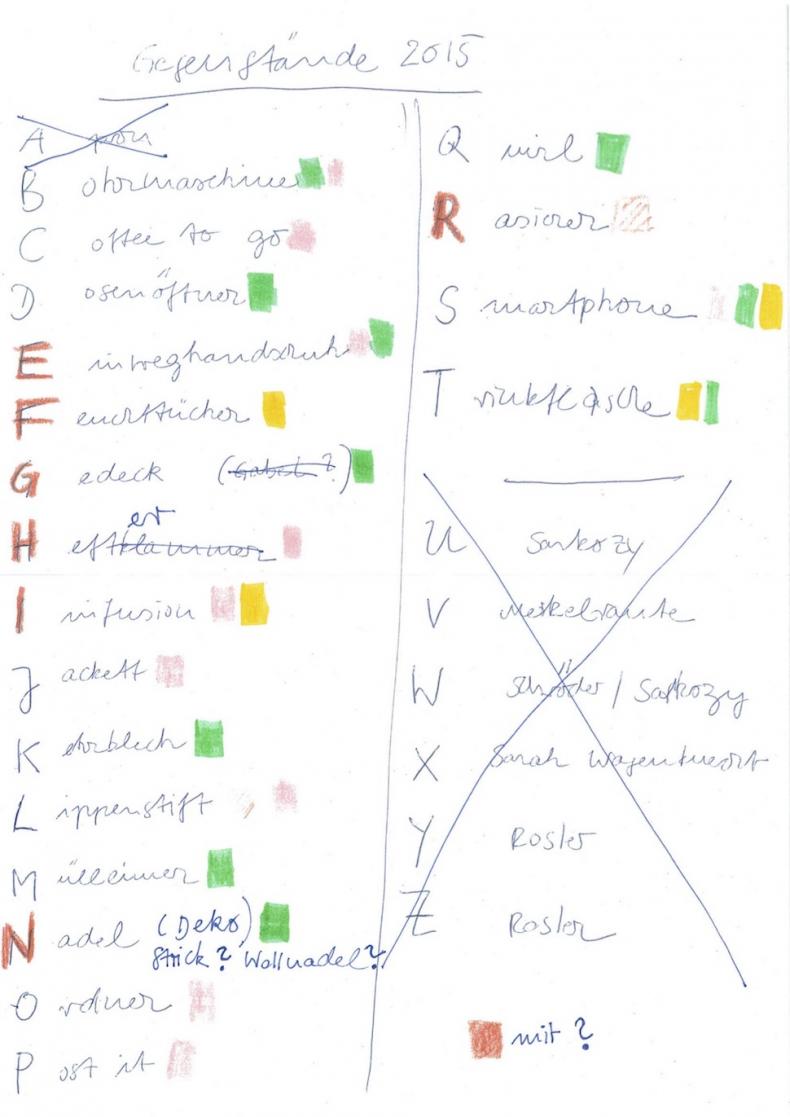 Gegenstände 2015
A
B ohrmaschine
C offee to go
D osenöffner
E inweghandschuh
F euchttücher
G edeck (Gabel?)
H efter eftklammer
I infusion
J ackett
K ehrblech
L ippenstift
M ülleimer
N adel (Deko)
Strick? Wollnadel?
O rdner
P ost it
Q uirl
R asierer
S martphone
T rinkflasche
U Sarkozy
V Merkelraute
W Schröder / Sarkozy
X Sarah Wagenknecht
Y Rösler
Z Rosler
mit?